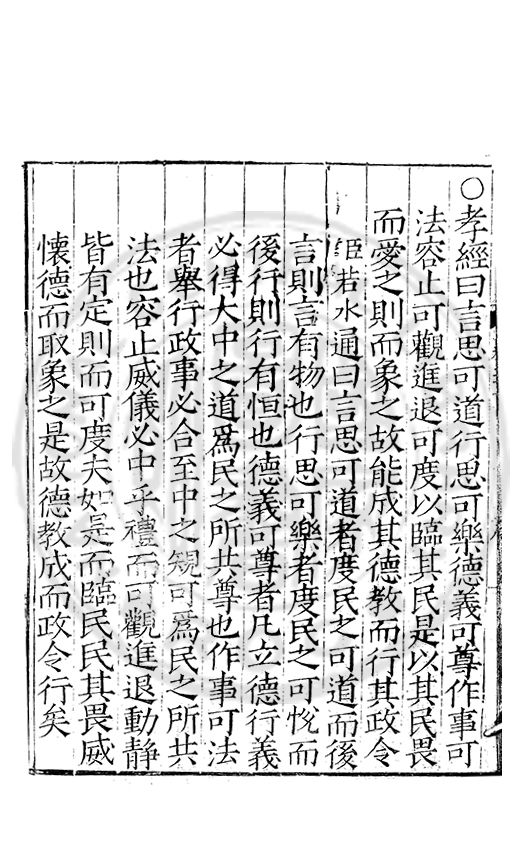 ○孝經曰言思可道行思可樂德義可尊作事可
法容止可觀進退可度以臨其民是以其民畏
而愛之則而象之故能成其德教而行其政令
臣若水通曰言思可道者度民之可道而後
言則言有物也行思可樂者度民之可悅而
後行則行有恒也德義可尊者凡立德行義
必得大中之道爲民之所共尊也作事可法
者舉行政事必合至中之規可爲民之所共
法也容止威儀必中乎禮而可觀進退動靜
皆有定則而可度夫如是而臨民民其畏威
懐德而取象之是故德教成而政令行矣